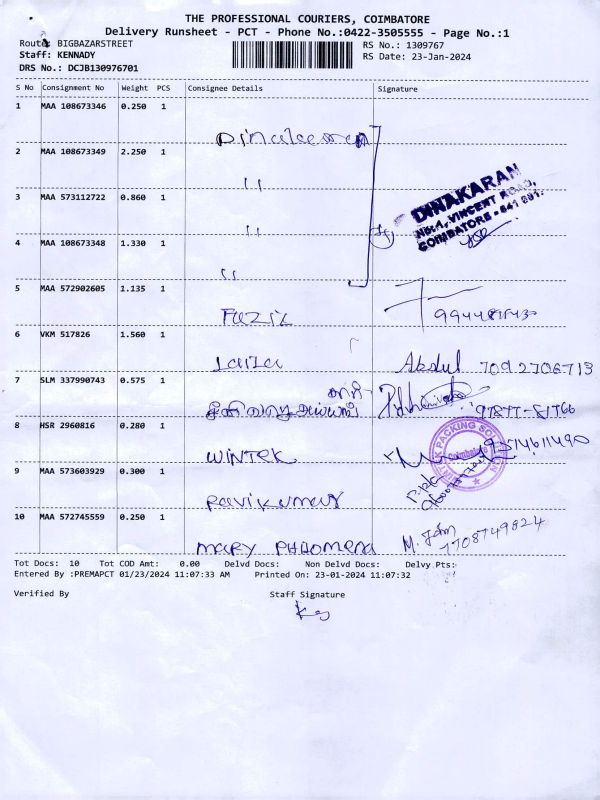 THE PROFESSIONAL COURIERS, COIMBATORE
Delivery Runsheet - PCT - Phone No.:0422-3505555 - Page No.:1
Route: BIGBAZARSTREET
RS No.: 1309767
Staff: KENNADY
RS Date: 23-Jan-2024
DRS No.: DCJB130976701
S No Consignment No Weight PCS Consignee Details Signature
1 MAA 108673346 0.250 1
Dinakaran
2 MAA 108673349 2.250 1
"
3 MAA 573112722 0.860 1
"
4 MAA 108673348 1.330 1
"
DINAKARAN
No:1, VINCENT ROAD,
COIMBATORE - 641 001.
5 MAA 572902605 1.135 1
FUZIL
6 VKM 517826 1.560 1
Laila Abdul 7092706713
7 SLM 337990743 0.575 1
97877-81766
8 HSR 2960816 0.280 1
WINTEK 9514611490
PACKING
Coimbatore
9 MAA 573603929 0.300 1
Ravikumar
10 MAA 572745559 0.250 1
MARY PHILOMENA M. John
7708749824
Tot Docs: 10 Tot COD Amt: 0.00 Delvd Docs: Non Delvd Docs: Delvy Pts:
Entered By :PREMAPCT 01/23/2024 11:07:33 AM Printed On: 23-01-2024 11:07:32
Verified By Staff Signature